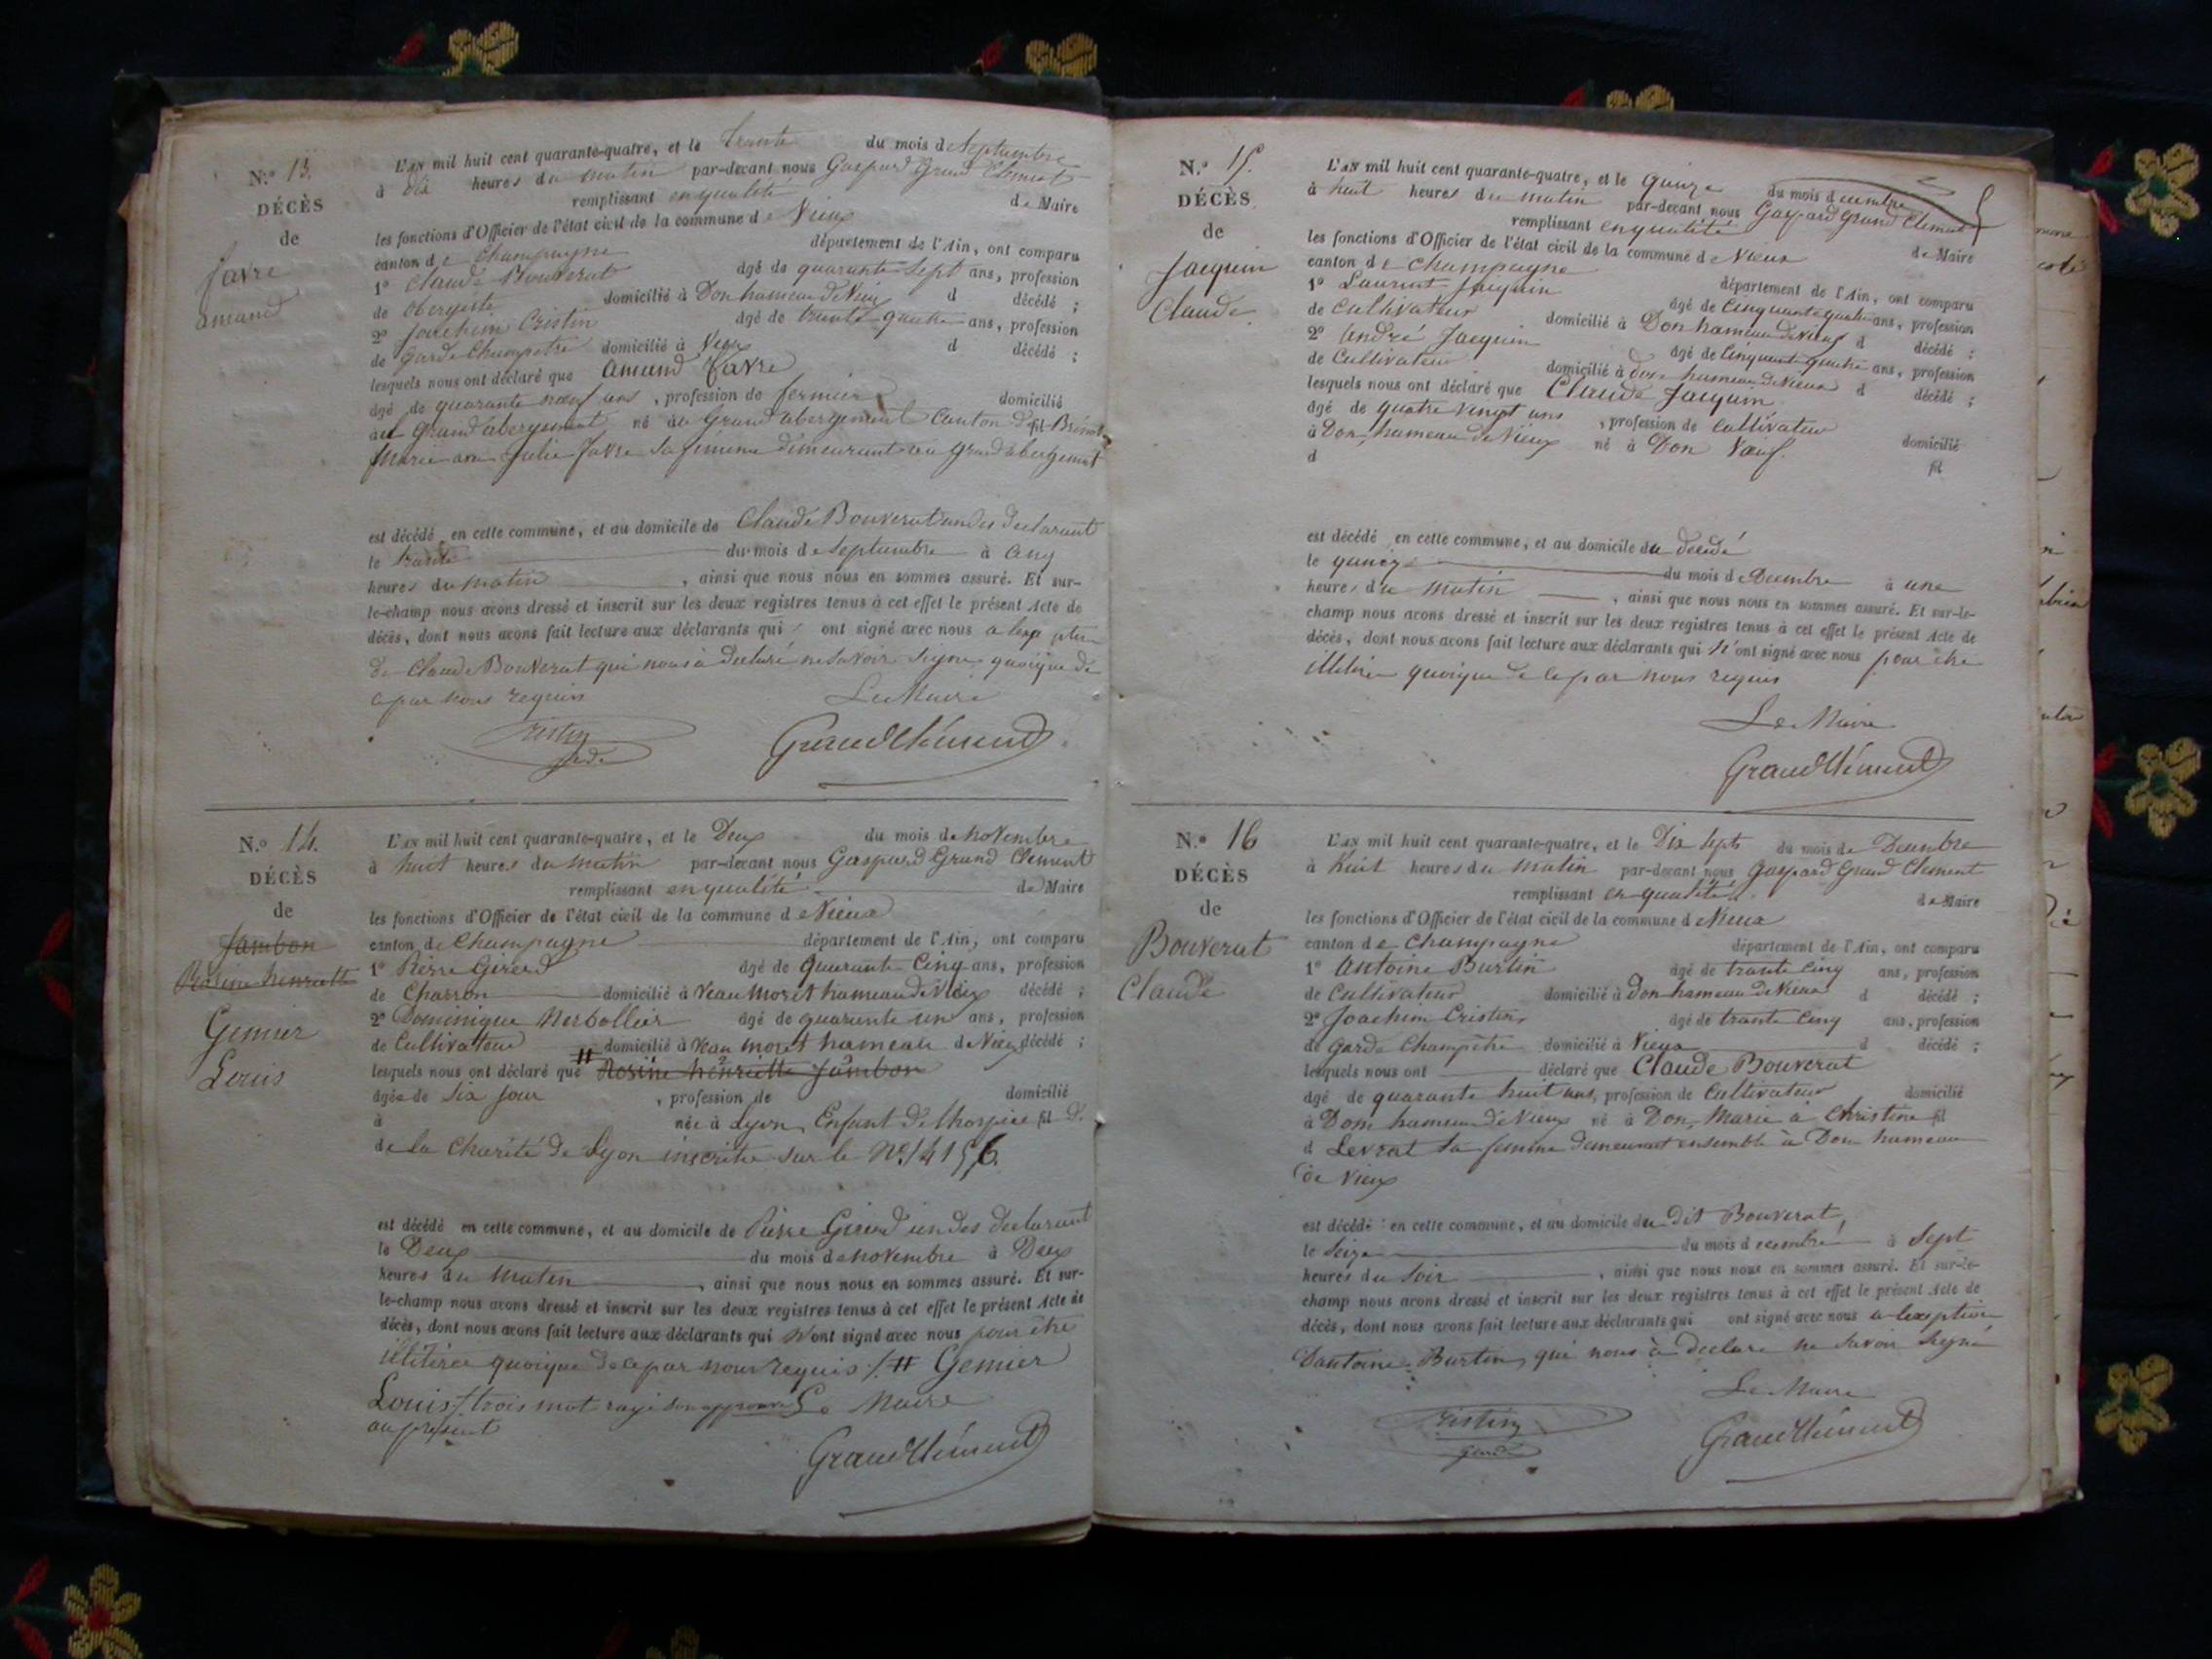 N.° 13.
DÉCÈS
de
favre
amand
L'AN mil huit cent quarante-quatre, et le trante du mois de Septembre
à dix heures du matin par-devant nous Gaspard Grand Clement
remplissant en qualité de Maire
les fonctions d'Officier de l'état civil de la commune de Vieux
canton de Champagne département de l'Ain, ont comparu
1° Claude Bouverat âgé de quarante Sept ans, profession
de obergiste domicilié à Don hameau de Vieux d décédé ;
2° Joachim Cristin âgé de trente quatre ans, profession
de garde Champetre domicilié à Vieux d décédé ;
lesquels nous ont déclaré que Amand favre
âgé de quarante nœuf ans, profession de fermier domicilié
au Grand abergement né au Grand abergement Canton de fil Brénod
Marié a Julie favre sa femme demeurant au grand abergement
est décédé en cette commune, et au domicile de Claude Bouverat un des declarant
le trante du mois de Septembre à cinq
heures du matin, ainsi que nous nous en sommes assuré. Et sur-
le-champ nous avons dressé et inscrit sur les deux registres tenus à cet effet le présent Acte de
décès, dont nous avons fait lecture aux déclarants qui ont signé avec nous a lexeption
de Claude Bouverat qui nous à declaré ne savoir signe quoique de
ce par nous requis
Le Maire
Cristin
Grand Clément
N.° 14.
DÉCÈS
de
Jambon
Rosine henriette
Gemier
Louis
L'AN mil huit cent quarante-quatre, et le Deux du mois de novembre
à huit heures du matin par-devant nous Gaspard Grand Clement
remplissant en qualité de Maire
les fonctions d'Officier de l'état civil de la commune de Vieux
canton de Champagne département de l'Ain, ont comparu
1° Pierre Girerd âgé de quarante Cinq ans, profession
de Charron domicilié à Veaumoret hameau de Vieux décédé ;
2° Dominique Nerbollier âgé de quarante un ans, profession
de Cultivateur domicilié à Veau moret hameau de Vieux décédé ;
lesquels nous ont déclaré que # Rosine henriette Jambon
âgée de Six jour, profession de domicilié
à née à Lyon Enfant de lhospice fil d
de la Charité de Lyon inscritte sur le N° 14156
est décédé en cette commune, et au domicile de Pierre Girerd un des declarant
le Deux du mois de novembre à Deux
heures du matin, ainsi que nous nous en sommes assuré. Et sur-
le-champ nous avons dressé et inscrit sur les deux registres tenus à cet effet le présent Acte de
décès, dont nous avons fait lecture aux déclarants qui n'ont signé avec nous pour être
illitirée quoique de ce par nous requis /. # Gemier
Louis / trois mot rayé son approuvé Le Maire
au présent
Grand Clément
N.° 15.
DÉCÈS
de
Jacquin
Claude
L'AN mil huit cent quarante-quatre, et le quinze du mois decembre
à huit heures du matin par-devant nous Gaspard Grand Clement
remplissant en qualité de Maire
les fonctions d'Officier de l'état civil de la commune de Vieux
canton de Champagne département de l'Ain, ont comparu
1° Laurent Jacquin âgé de cinquante quatre ans, profession
de Cultivateur domicilié à Don hameau de Vieux d décédé ;
2° André Jacquin âgé de cinquante quatre ans, profession
de Cultivateur domicilié à don hameau de Vieux d décédé ;
lesquels nous ont déclaré que Claude Jacquin
âgé de quatre vingt ans, profession de Cultivateur domicilié
à Don hameau de Vieux né à Don Vœuf fil
d
est décédé en cette commune, et au domicile du decedé
le quinze du mois de Decembre à une
heures du matin, ainsi que nous nous en sommes assuré. Et sur-le-
champ nous avons dressé et inscrit sur les deux registres tenus à cet effet le présent Acte de
décès, dont nous avons fait lecture aux déclarants qui n'ont signé avec nous pour être
quoique de ce par nous requis
Le Maire
Grand Clément
N.° 16
DÉCÈS
de
Bouverat
Claude
L'AN mil huit cent quarante-quatre, et le Dix Sept du mois de Decembre
à huit heures du matin par-devant nous Gaspard Grand Clement
remplissant en qualité de Maire
les fonctions d'Officier de l'état civil de la commune de Vieux
canton de Champagne département de l'Ain, ont comparu
1° Antoine Burtin âgé de trante Cinq ans, profession
de Cultivateur domicilié à Don hameau de Vieux d décédé ;
2° Joachim Cristin âgé de trante Cinq ans, profession
de garde Champetre domicilié à Vieux d décédé ;
lesquels nous ont déclaré que Claude Bouverat
âgé de quarante huit ans, profession de Cultivateur domicilié
à Don hameau de Vieux né à Don, Marié à Christine fil
d Levrat sa femme demeurant ensemble à Don hameau
de Vieux
est décédé en cette commune, et au domicile du Dit Bouverat,
le Seize du mois decembre à Sept
heures du Soir, ainsi que nous nous en sommes assuré. Et sur-le-
champ nous avons dressé et inscrit sur les deux registres tenus à cet effet le présent Acte de
décès, dont nous avons fait lecture aux déclarants qui ont signé avec nous a lexeption
Dantoine Burtin qui nous à declare ne savoir signé
Le Maire
Cristin
garde
Grand Clément